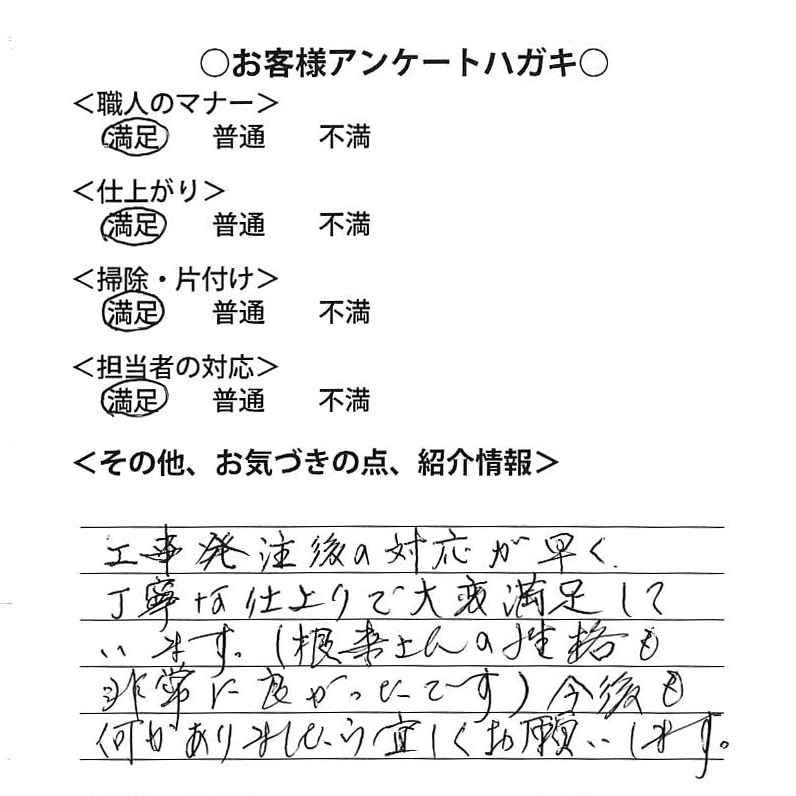 ○お客様アンケートハガキ○
＜職人のマナー＞
満足 普通 不満
＜仕上がり＞
満足 普通 不満
＜掃除・片付け＞
満足 普通 不満
＜担当者の対応＞
満足 普通 不満
＜その他、お気づきの点、紹介情報＞
工事発注後の対応が早く、
丁寧な仕上りで大変満足して
います。(根来さんの性格も
非常に良かったです)今後も
何かありましたら宜しくお願いします。